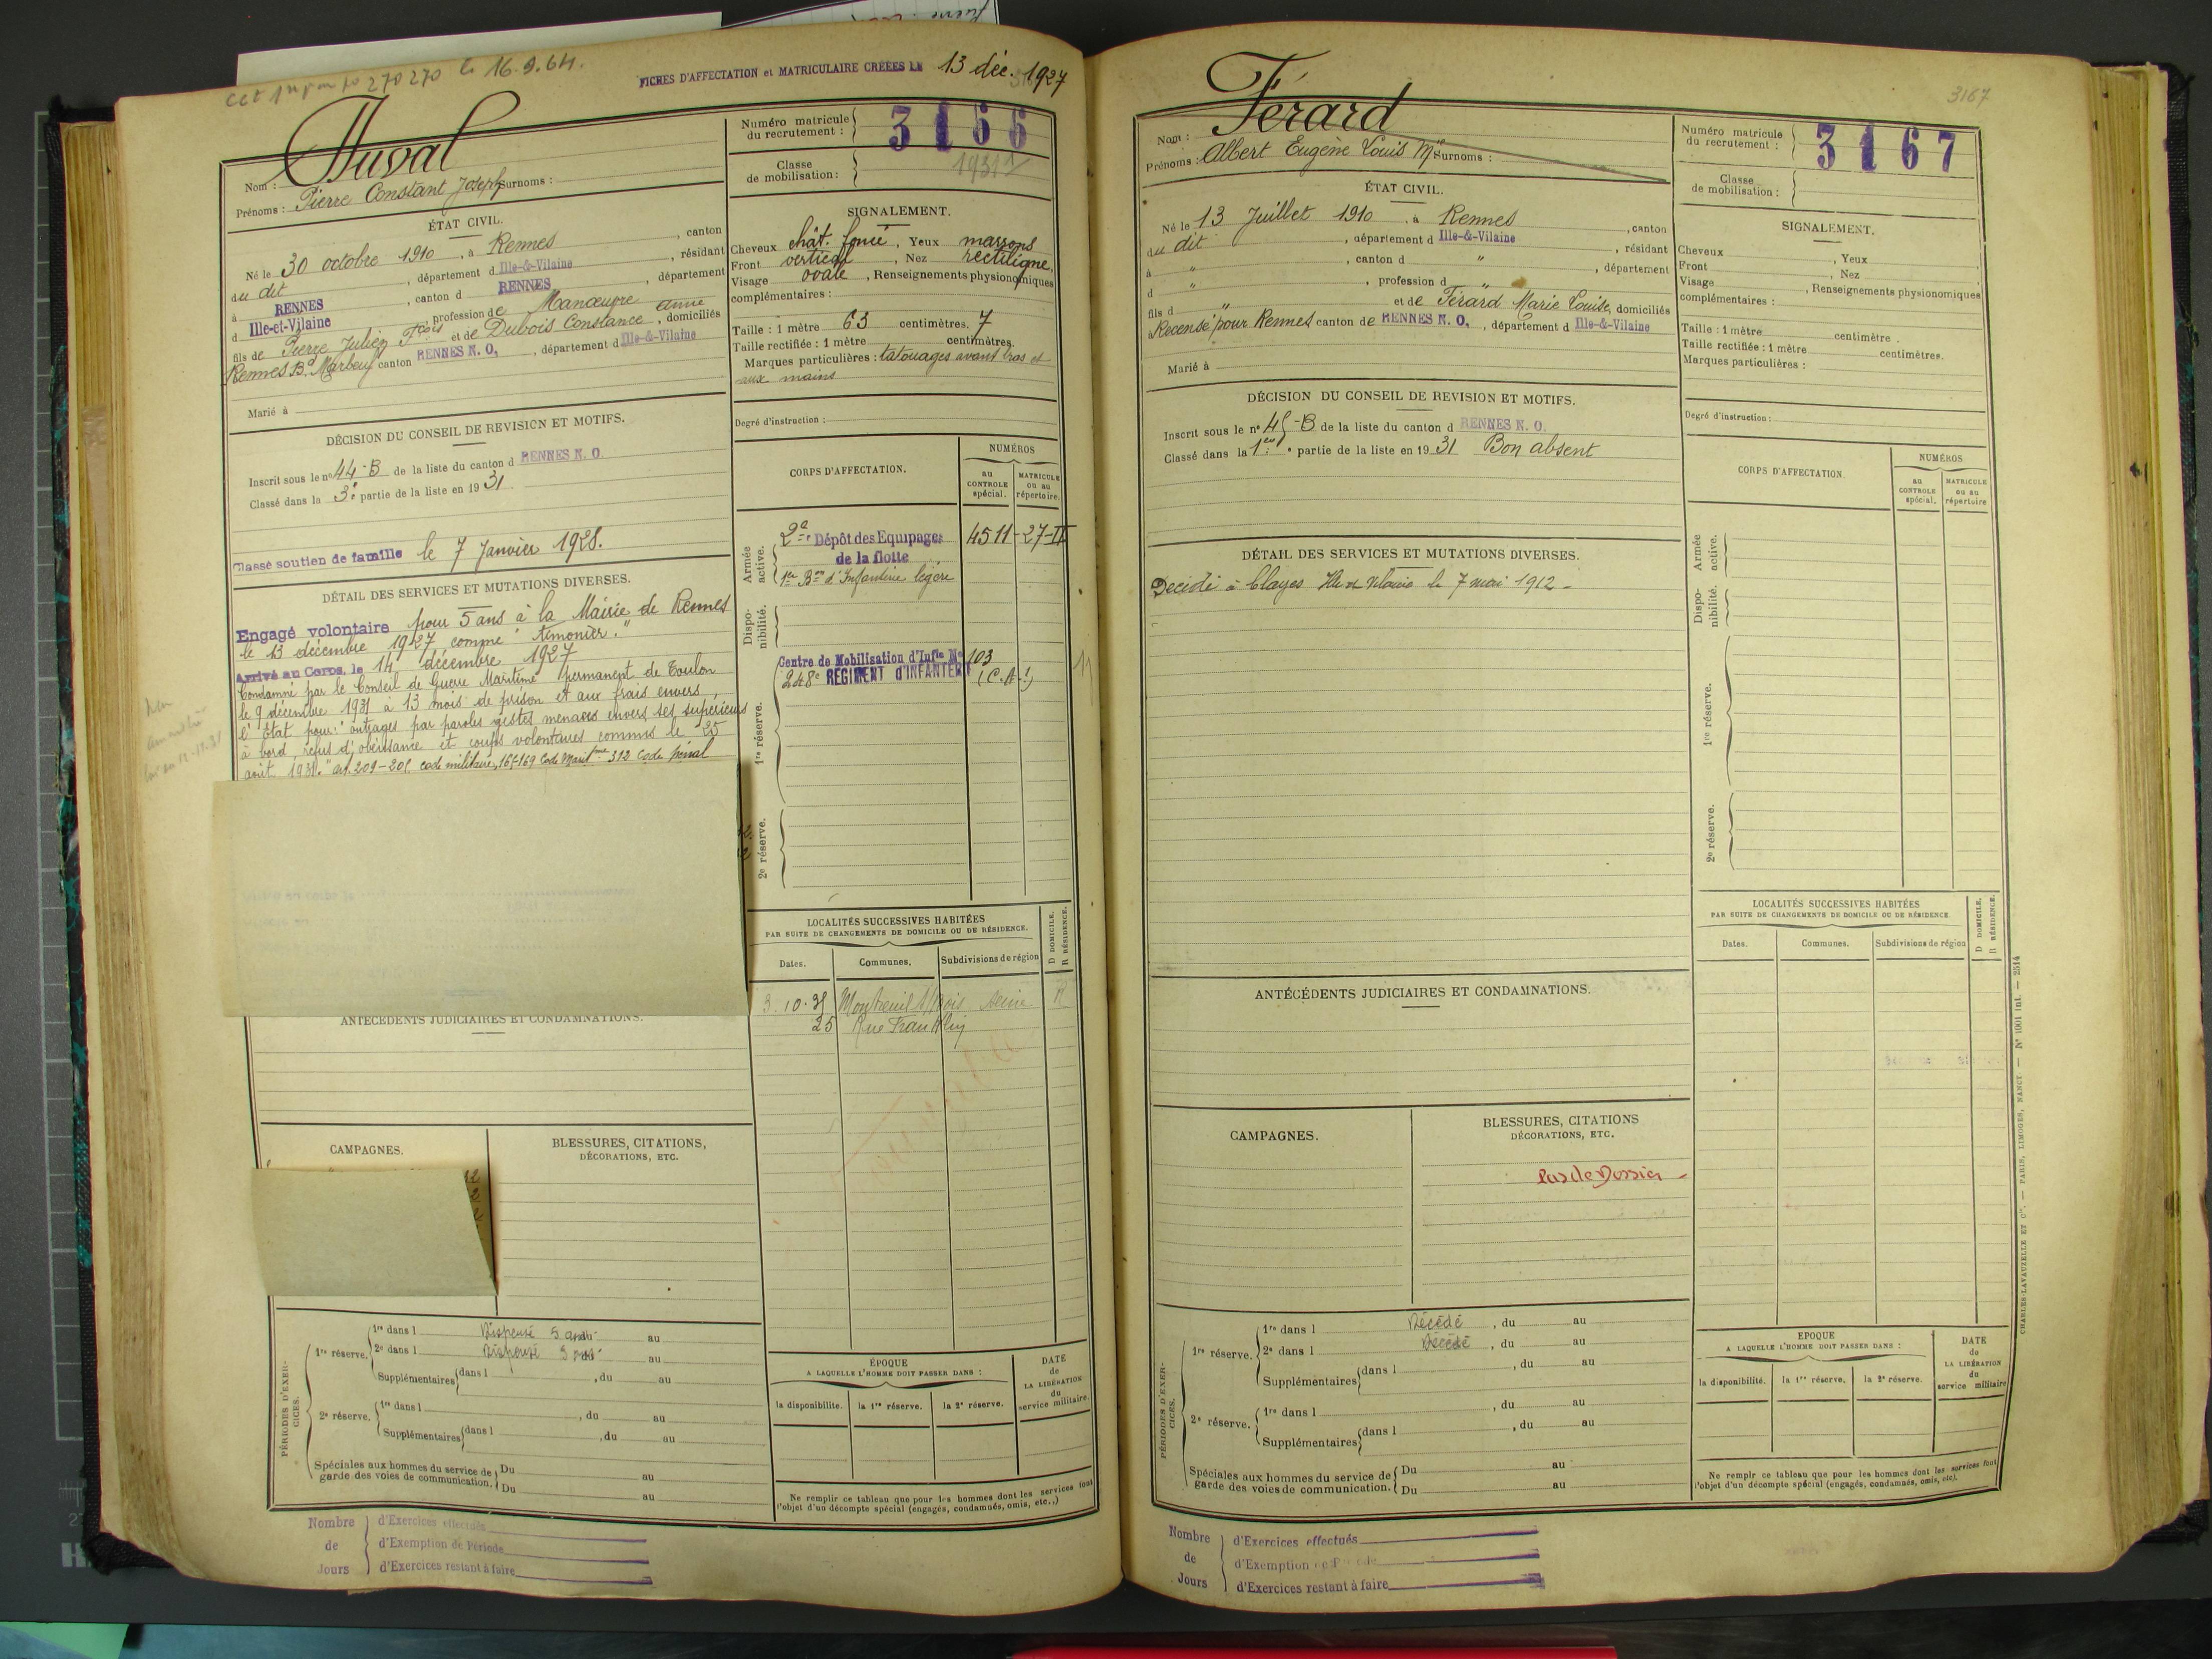 cct 1er pon po 270 270 le 16.9.64.
FICHES D'AFFECTATION et MATRICULAIRE CRÉÉES LE 13 déc. 1927
Nom : Duval
Prénoms : Pierre Constant Joseph Surnoms :
Numéro matricule du recrutement : 3166
Classe de mobilisation : 1931/1
ÉTAT CIVIL.
Né le 30 octobre 1910, à Rennes, canton
du dit, département d Ille-&-Vilaine, résidant
à RENNES, canton d RENNES, département
d Ille-et-Vilaine, profession de Manœuvre
fils de Pierre Julien Fcois et de Dubois Constance Anne, domiciliés
Rennes Bd Marbeuf canton RENNES N. O., département d Ille-&-Vilaine
Marié à
SIGNALEMENT.
Cheveux chât. foncé, Yeux marrons
Front vertical, Nez rectiligne,
Visage ovale, Renseignements physionomiques
complémentaires :
Taille : 1 mètre 63 centimètres. 7
Taille rectifiée : 1 mètre centimètres.
Marques particulières : tatouages avant bras et
aux mains
Degré d'instruction :
DÉCISION DU CONSEIL DE REVISION ET MOTIFS.
Inscrit sous le no 44-B de la liste du canton d RENNES N. O.
Classé dans la 3e partie de la liste en 1931
Classé soutien de famille le 7 Janvier 1928.
DÉTAIL DES SERVICES ET MUTATIONS DIVERSES.
Engagé volontaire pour 5 ans à la Mairie de Rennes
le 13 décembre 1927 comme "timonier."
Arrivé au Corps, le 14 décembre 1927
Condamné par le Conseil de Guerre Maritime permanent de Toulon
le 9 décembre 1931 à 13 mois de prison et aux frais envers
l'État pour: "outrages par paroles gestes menaces envers ses supérieurs
à bord, refus d'obéissance et coups volontaires commis le 25
août 1931." art. 209-205 code militaire, 165-169 Code Maritime 312 Code pénal
CORPS D'AFFECTATION.
NUMÉROS
au CONTROLE spécial.
MATRICULE ou au répertoire.
Armée active.
2e Dépôt des Equipages 4511-27-II
de la flotte
1er Bon d'Infanterie légère
Dispo-nibilité.
Centre de Mobilisation d'Infie No 103
248e REGIMENT d'INFANTERIE (C.A.1)
11
1re réserve.
2e réserve.
LOCALITÉS SUCCESSIVES HABITÉES
PAR SUITE DE CHANGEMENTS DE DOMICILE OU DE RÉSIDENCE.
D DOMICILE. R RÉSIDENCE.
Dates. Communes. Subdivisions de région
3.10.38 Montreuil s/Bois Seine R
25 Rue Franklin
ANTÉCÉDENTS JUDICIAIRES ET CONDAMNATIONS.
CAMPAGNES.
BLESSURES, CITATIONS,
DÉCORATIONS, ETC.
PÉRIODES D'EXERCICES.
1re réserve. 1re dans l Dispensé 5 ans au
2e dans l Dispensé 5 ans au
Supplémentaires dans l , du au
2e réserve. 1re dans l , du au
Supplémentaires dans l , du au
Spéciales aux hommes du service de garde des voies de communication. Du au
Du au
ÉPOQUE
A LAQUELLE L'HOMME DOIT PASSER DANS :
la disponibilité. la 1re réserve. la 2e réserve.
DATE de LA LIBÉRATION du service militaire.
Ne remplir ce tableau que pour les hommes dont les services font
l'objet d'un décompte spécial (engagés, condamnés, omis, etc..)
Nombre de Jours
d'Exercices effectués
d'Exemption de Période
d'Exercices restant à faire
3167
Nom : Férard
Prénoms : Albert Eugène Louis Mie Surnoms :
Numéro matricule du recrutement : 3167
Classe de mobilisation :
ÉTAT CIVIL.
Né le 13 Juillet 1910, à Rennes, canton
du dit, département d Ille-&-Vilaine, résidant
à ", canton d ", département
d ", profession d "
fils d " et de Férard Marie Louise, domiciliés
Recensé pour Rennes canton de RENNES N. O., département d Ille-&-Vilaine
Marié à
SIGNALEMENT.
Cheveux , Yeux
Front , Nez
Visage , Renseignements physionomiques
complémentaires :
Taille : 1 mètre centimètre.
Taille rectifiée : 1 mètre centimètres.
Marques particulières :
Degré d'instruction :
DÉCISION DU CONSEIL DE REVISION ET MOTIFS.
Inscrit sous le no 45-B de la liste du canton d RENNES N. O.
Classé dans la 1ère partie de la liste en 1931 Bon absent
DÉTAIL DES SERVICES ET MUTATIONS DIVERSES.
Decidé à Clayes Ille et Vilaine le 7 mai 1912 -
CORPS D'AFFECTATION.
NUMÉROS
au CONTROLE spécial.
MATRICULE ou au répertoire
Armée active.
Dispo-nibilité.
1re réserve.
2e réserve.
LOCALITÉS SUCCESSIVES HABITÉES
PAR SUITE DE CHANGEMENTS DE DOMICILE OU DE RÉSIDENCE.
D DOMICILE. R RÉSIDENCE.
Dates. Communes. Subdivisions de région
ANTÉCÉDENTS JUDICIAIRES ET CONDAMNATIONS.
CAMPAGNES.
BLESSURES, CITATIONS
DÉCORATIONS, ETC.
Pas de Dossier -
PÉRIODES D'EXERCICES.
1re réserve. 1re dans l Décédé, du au
2e dans l Décédé, du au
Supplémentaires dans l , du au
2e réserve. 1re dans l , du au
Supplémentaires dans l , du au
Spéciales aux hommes du service de garde des voies de communication. Du au
Du au
EPOQUE
A LAQUELLE L'HOMME DOIT PASSER DANS :
la disponibilité. la 1re réserve. la 2e réserve.
DATE de LA LIBÉRATION du service militaire
Ne remplr ce tableau que pour les hommes dont les services font
l'objet d'un décompte spécial (engagés, condamnés, omis, etc).
Nombre de Jours
d'Exercices effectués
d'Exemption
d'Exercices restant à faire
CHARLES-LAVAUZELLE ET Cie. — PARIS, LIMOGES, NANCY — No 1001 int. — 2514